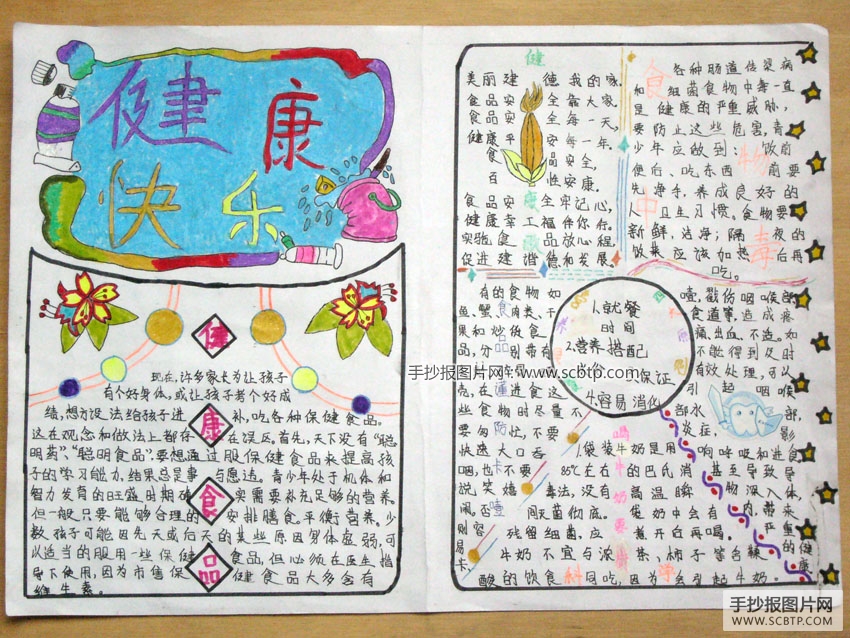 健康
快乐
健
康
食
品
现在,许多家长为让孩子
有个好身体,或让孩子考个好成
结,想方设法给孩子进补,吃各种保健食品。
这在观念和做法上都存在误区。首先,天下没有“聪
明药”、“聪明食品”,要想通过服保健食品来提高孩
子的学习能力,结果总是事与愿违。青少年处于机体和
智力发育的旺盛时期确实需要补充足够的营养。
但一般只要能够合理的安排膳食,平衡营养。少
数孩子可能因先天或后天的某些原因身体虚弱,可
以适当的服用一些保健食品,但必须在医生指
导下使用,因为市售保健食品大多含有
维生素。
健
美丽建德我的家,
食品安全靠大家,
食品安全每一天,
健康平安每一年。
食品安全,
百姓安康。
食品安全牢记心,
健康幸福伴你行。
实验食品放心程,
促进建德和谐发展。
食物中毒
各种肠道传染病
和细菌食物中毒一直
是健康的严重威胁,
要防止这些危害,青
少年应做到:饭前
便后、吃东西前要
先净手,养成良好的
人卫生习惯。食物要
新鲜,洁净;隔夜的
饭菜应该加热后再
吃。
1.就餐
时间
2.营养搭配
保证
4.容易消化
有的食物如
鱼、蟹、食肉类、干
果和炒货食
品,分别带有
壳,在进食这
些食物时尽量不
要匆忙,不要
快速大口吞
咽,也不要
说笑嬉
闹,否
则容
易卡
噎,戳伤咽喉部
食道等,造成疼
痛、出血、不适。如
不能得到及时
有效处理,可以
引起咽喉
部水
炎症,影
响呼吸和进食
甚至导致导
物深入体
内,带来
严重的
健康
袋装牛奶是用
85℃左右的巴氏消
毒法,没有高温瞬
间灭菌彻底。袋奶中会有
残留细菌,应煮开后再喝。
牛奶不宜与浓茶、柿子等含鞣
酸的饮食同吃,因为会引起牛奶。
喝牛奶要
手抄报图片网:www.scbtp.com
手抄报图片网
WWW.SCBTP.COM